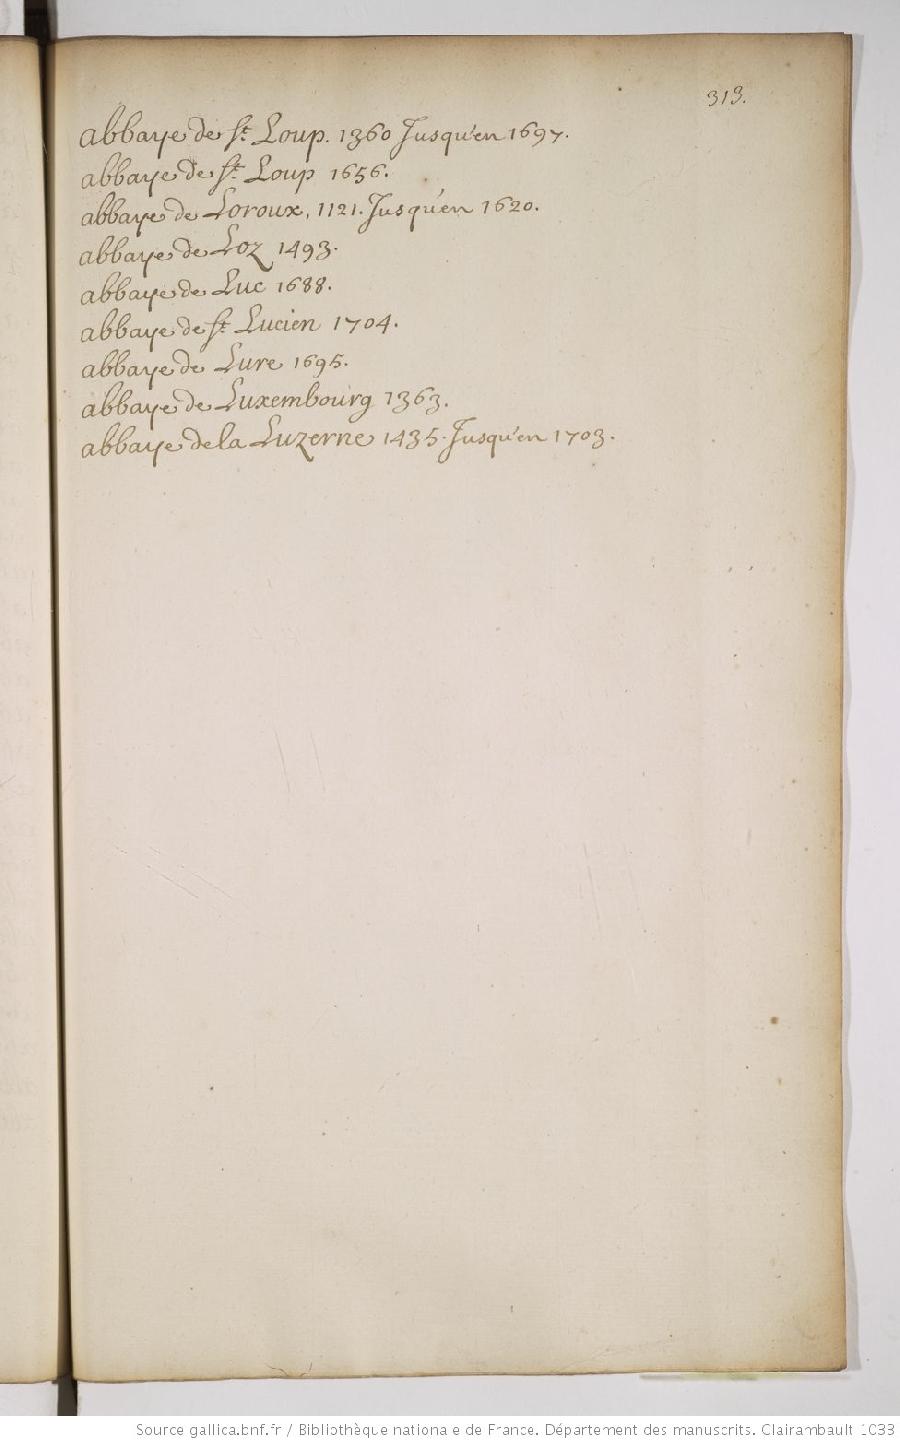 313.
abbaye de St. Loup. 1360 Jusqu'en 1697.
abbaye de St. Loup 1656.
abbaye de Loroux, 1121. Jusqu'en 1620.
abbaye de Loz 1493.
abbaye de Luc 1688.
abbaye de St. Lucien 1704.
abbaye de Lure 1695.
abbaye de Luxembourg 1363.
abbaye de la Luzerne 1435. Jusqu'en 1703.
Source gallica.bnf.fr / Bibliothèque nationale de France. Département des manuscrits. Clairambault 1033